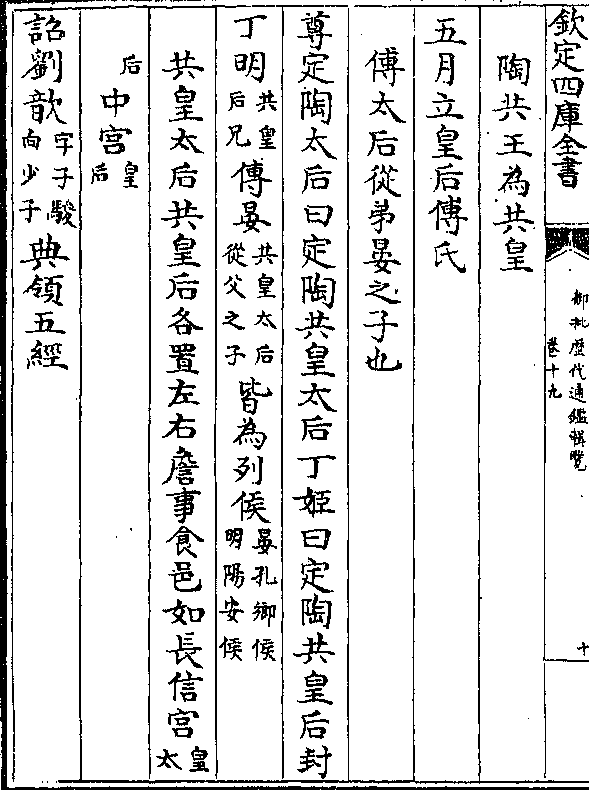 欽定四庫全書
御批歷代通鑑輯覽
卷十九
十
陶共王為共皇
五月立皇后傅氏
傅太后從弟晏之子也
尊定陶太后曰定陶共皇太后丁姬曰定陶共皇后封
丁明共皇后兄傅晏共皇太后從父之子皆為列侯晏孔鄉侯明陽安侯
共皇太后共皇后各置左右詹事食邑如長信宮皇太
后中宮皇后
詔劉歆字子駿向少子典領五經